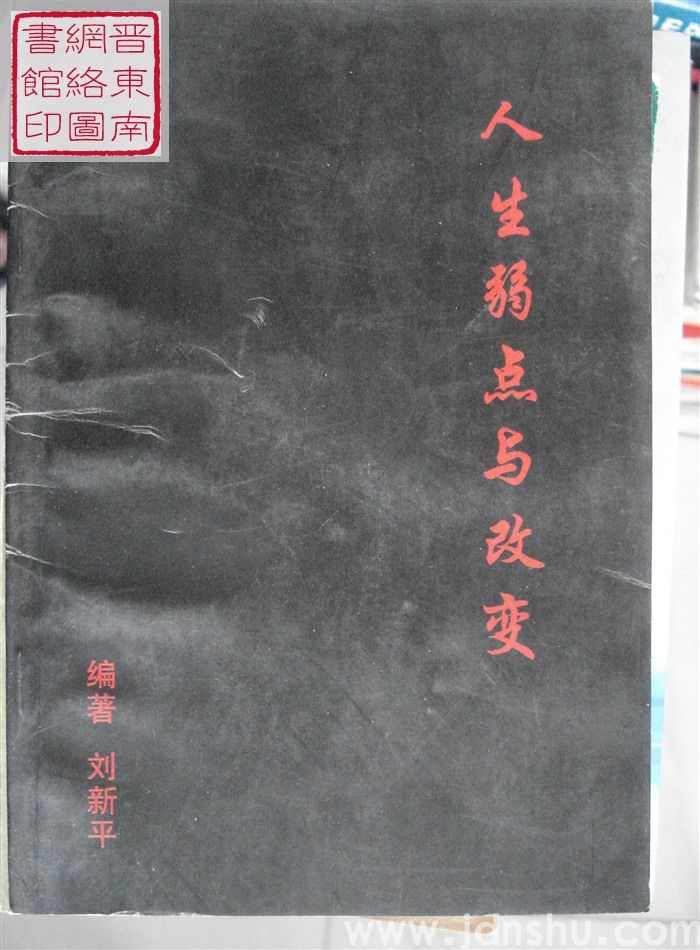 晋東南
網絡圖
書館印
人生弱点与改变
编著 刘新平
www.jdnshu.com